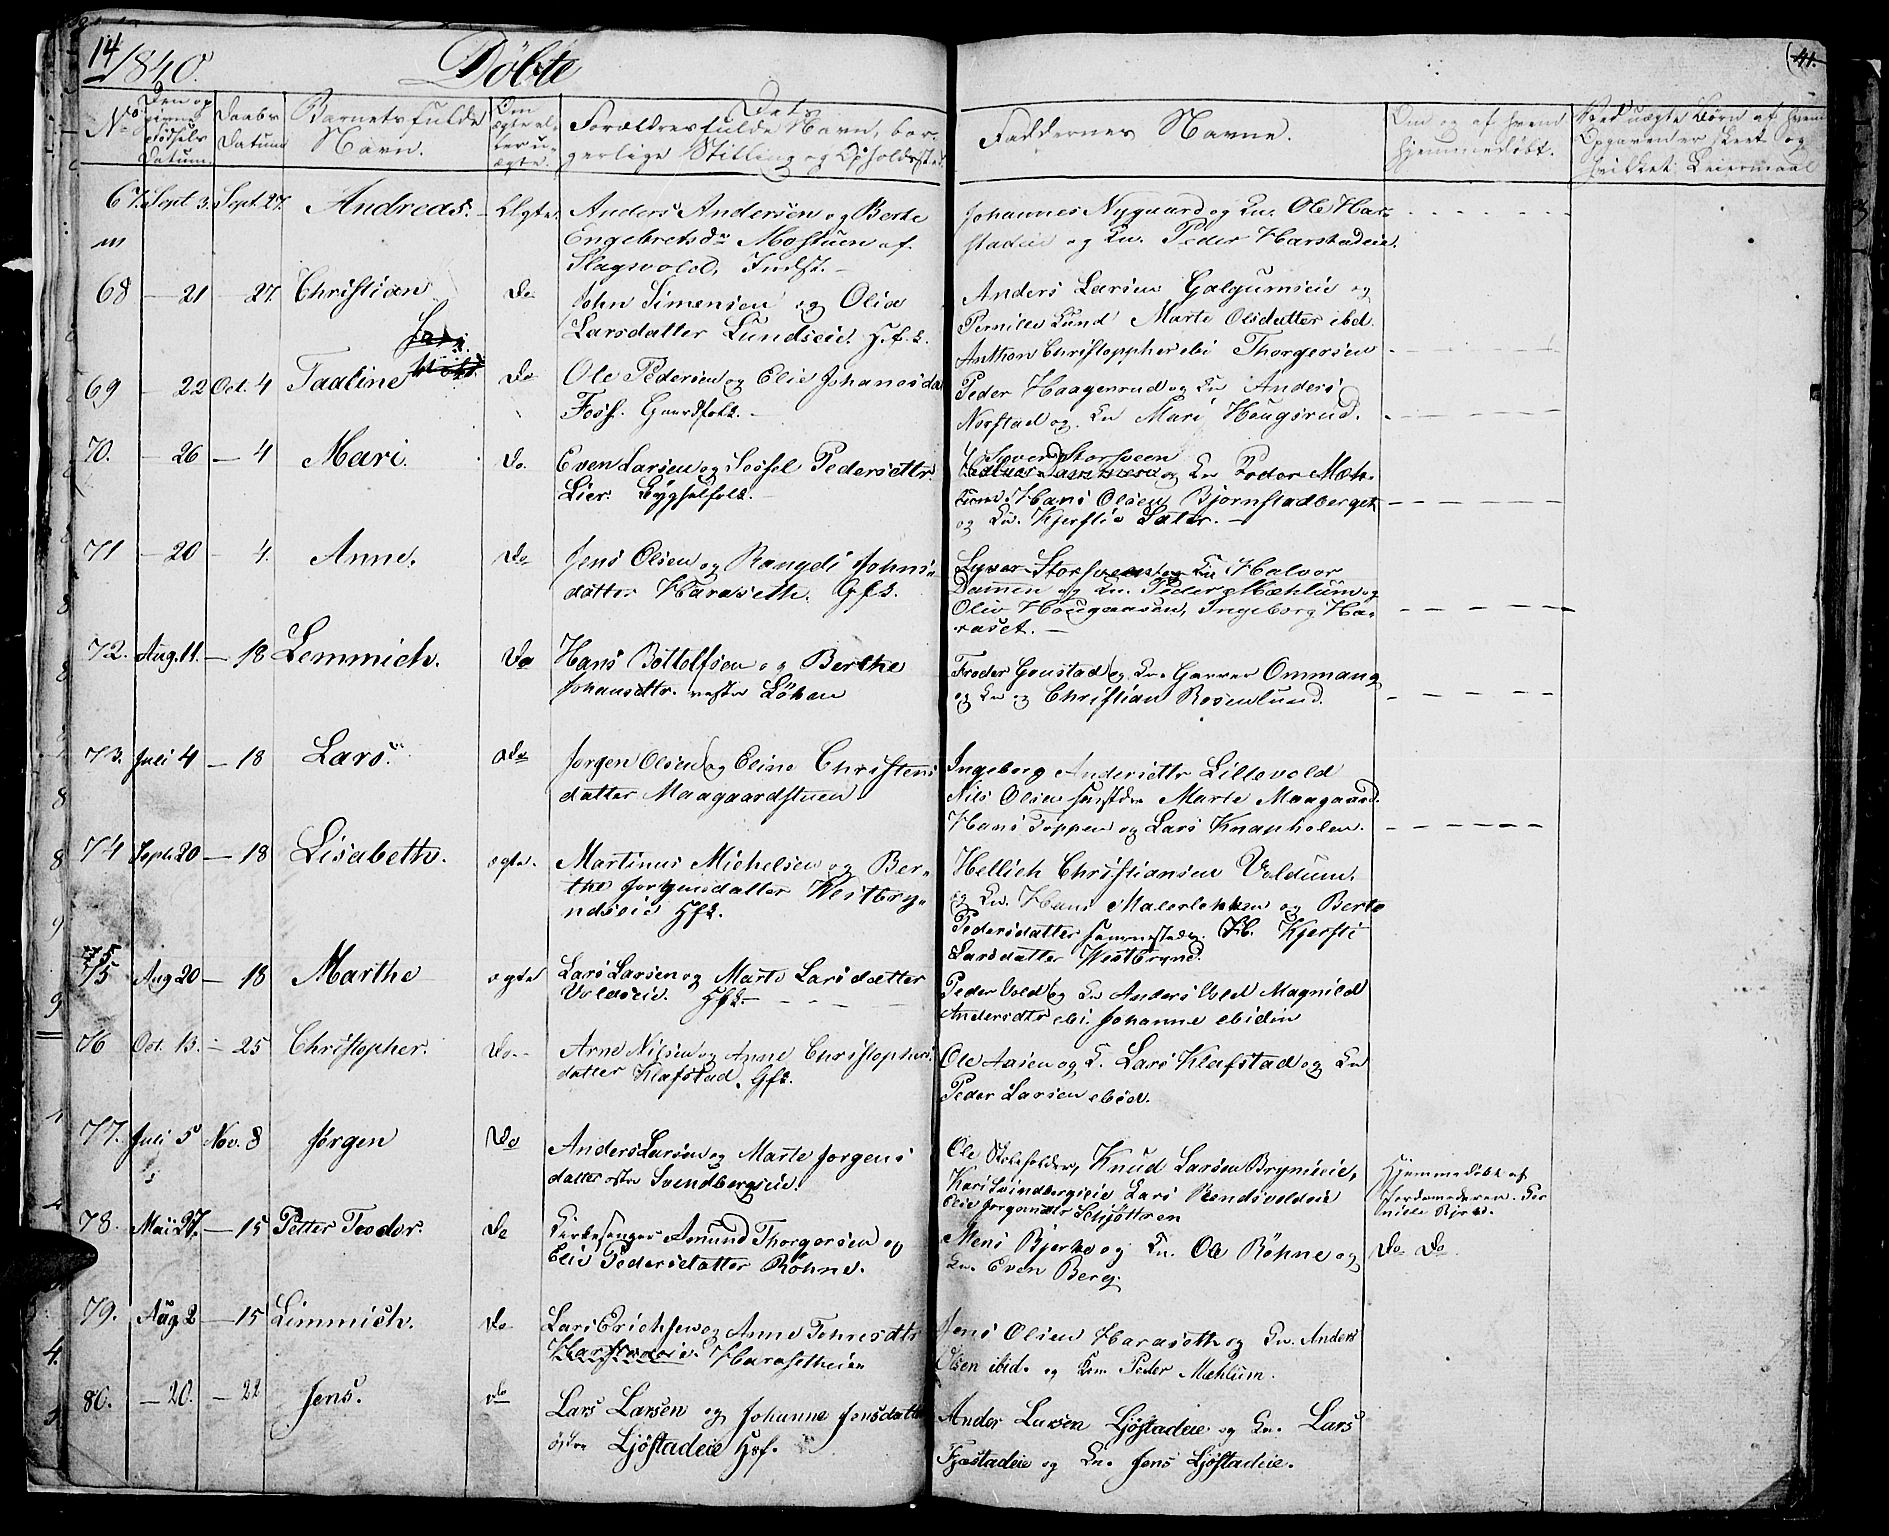 14
1840.
Döbte
41.
No
Den op
givne
födsels
Datum.
Daabs
Datum
Barnets fulde
Navn.
Om
ægte el-
ler u-
ægte.
Dets
Forældres fulde Navn, bor-
gerlige Stilling og Opholdssted
Faddernes Navne.
Om og af hvem
hjemmedøbt.
Ved uægte Börn af hvem
Opgaven er skeet og
hvilket Leiermaal
67. Sept 3. Sept. 27. Andreas. Ægte. Anders Andersen og Berte
Engebretsdr Mostuen af
Slagsvold, Indst.
Johannes Nygaard og Kn. Ole Har-
stadeie og Kn. Peder Harstadeie.
68 - 21 - 27. Christian Do John Simensen og Olia
Larsdatter Lundseie. H.f.k.
Anders Larsen Galgumseie og
Pernille Lund Marte Olsdatter ibd.
Anthon Christoppher ebi Thorgersen
69 - 22 Oct. 4 Taaline Do Ole Pedersen og Elie Johanesda
Foss. Gaardfolk.
Peder Haagenrud og Kn Anders
Norstad og Kn Mari Haugsrud.
70. - 26 - 4 Mari. Do. Even Larsen og Sessel Pedersdttr.
Lier. Bygselfolk.
Syver Storsveen
og Kn Peder Mæh-
lum. Hans Olsen Bjørnstadberget
og Kn. Kjerstie Sæter.
71 - 20 - 4. Anne. Do Jens Olsen og Rangdi Johns-
datter Haraseth. Gfk.
Syver Storsveen og Kn Halvor
Damen og Kn. Peder Mæhlum og
Oliv Haugaasen, Ingeborg Ha-
raset.
72. Aug. 11. - 18 Lemmich. Do Hans Bottolfsen og Berthe
Johansdtr. vestre Löken
Froder Gonstad og Kn. Garver Ommang
og Kn og Christian Rosenlund.
73. Juli 4 - 18 Lars. Do Jørgen Olsen og Eline Christens
datter Maagaardstuen.
Ingeborg Andersdttr Lillevold
Nils Olsen Marte Maagaard.
Hans Toppen og Lars Knapholen.
74 Sept. 20 - 18 Lisabeth. ægte. Martinus Michelsen og Ber-
the Jørgensdatter Westbry-
ndseie Hfk.
Hellich Christiansen Voldum.
og Kn. Hans Malerløkken og Berte
Pedersdatter sammestade. Kjersti
Larsdatter Westbrynd.
75 Aug 20 - 18 Marthe ægte Lars Larsen og Marte Larsdatter
Voldseie. Hfk.
Peder Vold og Kn Anders Vold Magnild
Andersdtr ebi. Johanne ebidin
76 Oct. 13. - 25 Christopher. Do. Arne Nilsen og Anne Christophers
datter Klafstad. Gfk.
Ole Aasen og K. Lars Klafstad og Kn
Peder Larsen ebid.
77. Juli 5 Nov. 8 Jørgen Do Anders Larsen og Marte Jorgens
datter østre Svendbergseie.
Ole Skoleholder, Knud Larsen Bryniseie,
Kari Svindbergseie Lars Rendsvoldeie
Olia Jørgensdtr Schjøttoen
Hjemmedøbt af
Jordemoderen. Per
nille Bjerke.
78. Mai 27. - 15 Petter Teodor. Do Kirkesanger Amund Thorgersen og
Elie Pedersdatter Röhne.
Mens Bjerke og Kn. Ole Röhne og
Kn. Even Berg.
Do Do
79. Aug. 2 - 15 Limmich. Do Lars Erichsen og Anne Tohresdtr
Harstadeie. Harasetheien
Jens Olsen Haraseth og Kn. Anders
Olsen ibid. og Kn Peder Mæhlum.
80. - 20. - 22 Jens. do Lars Larsen og Johanne Jensdatter
østre Ljøstadeie Hsf.
Ander Larsen Ljøstadeie og Kn. Lars
Fjæstadeie og Kn. Jens Ljøstadeie.